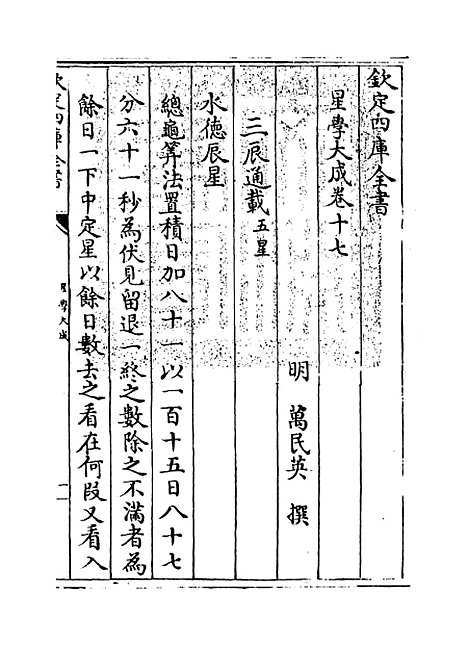 欽定四庫全書
星學大成卷十七
明 萬民英 撰
三辰通載五星
水德辰星
總龜筭法置積日加八十一以一百十五日八十七
分六十一秒為伏見留退一終之數除之不滿者為
餘日一下中定星以餘日數去之看在何段又看入
欽定四庫全書
星學大成
一